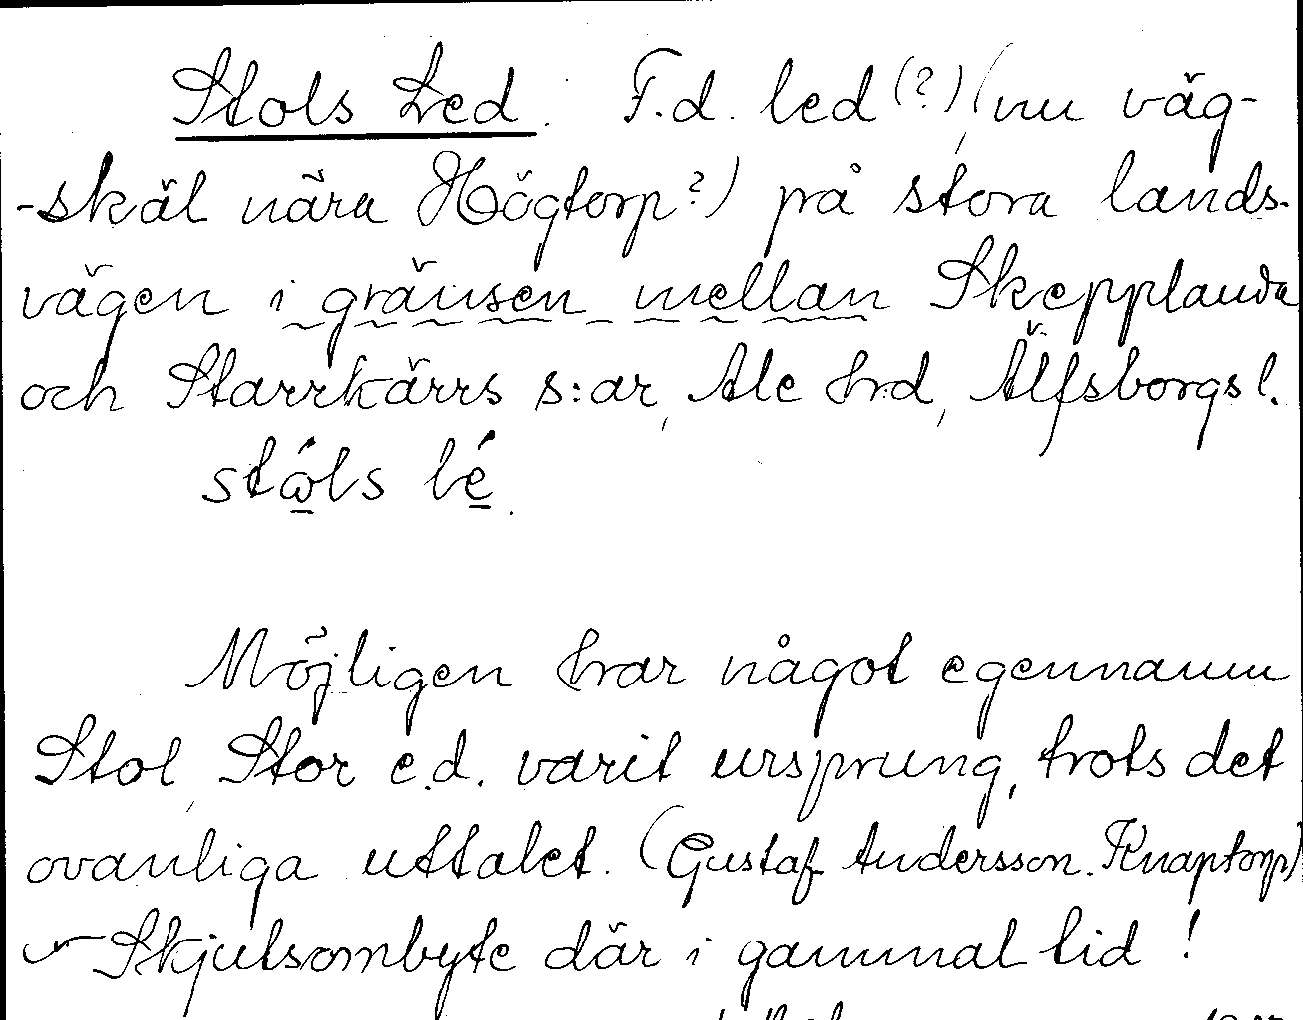 Stols Led. F.d. led (?), (nu väg-
-skäl nära Högtorp?) på stora lands-
vägen i gränsen mellan Skepplanda
och Starrkärrs s:ar, Ale hrd, Älfsborgs l.
stώls lé.
Möjligen har något egennamn
Stol, Stor e.d. varit ursprung, trots det
ovanliga uttalet. (Gustaf Andersson. Knaptorp)
Skjutsombyte där i gammal tid!